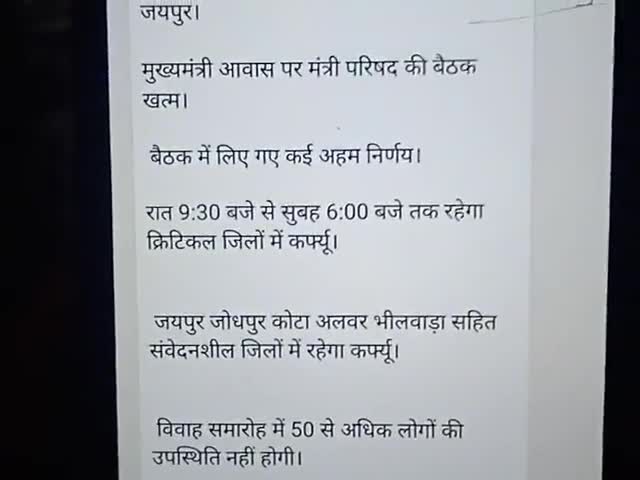 जयपुर।
मुख्यमंत्री आवास पर मंत्री परिषद की बैठक
खत्म।
बैठक में लिए गए कई अहम निर्णय।
रात 9:30 बजे से सुबह 6:00 बजे तक रहेगा
क्रिटिकल जिलों में कर्फ्यू।
जयपुर जोधपुर कोटा अलवर भीलवाड़ा सहित
संवेदनशील जिलों में रहेगा कर्फ्यू।
विवाह समारोह में 50 से अधिक लोगों की
उपस्थिति नहीं होगी।